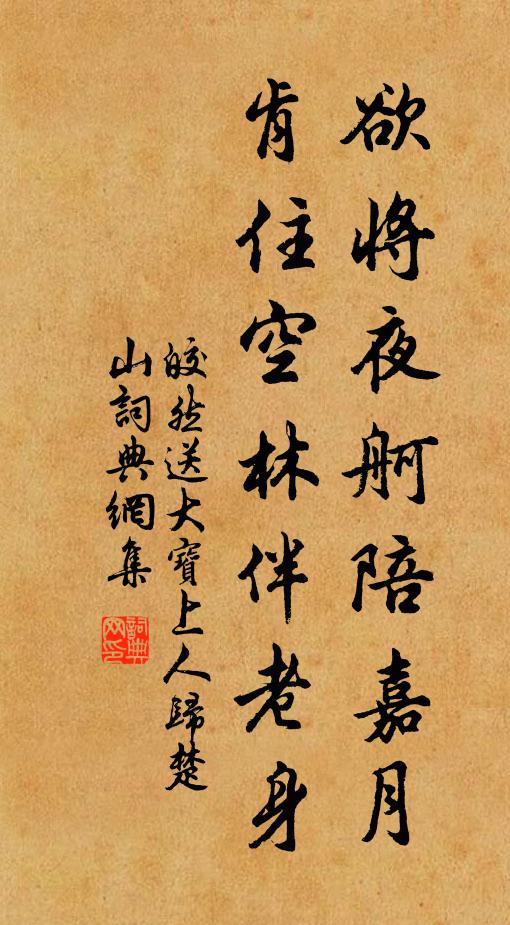 欲將夜舸陪嘉月
肯住空林伴老身
皎然送大寶上人歸楚
山詞典網集
詞典
网印